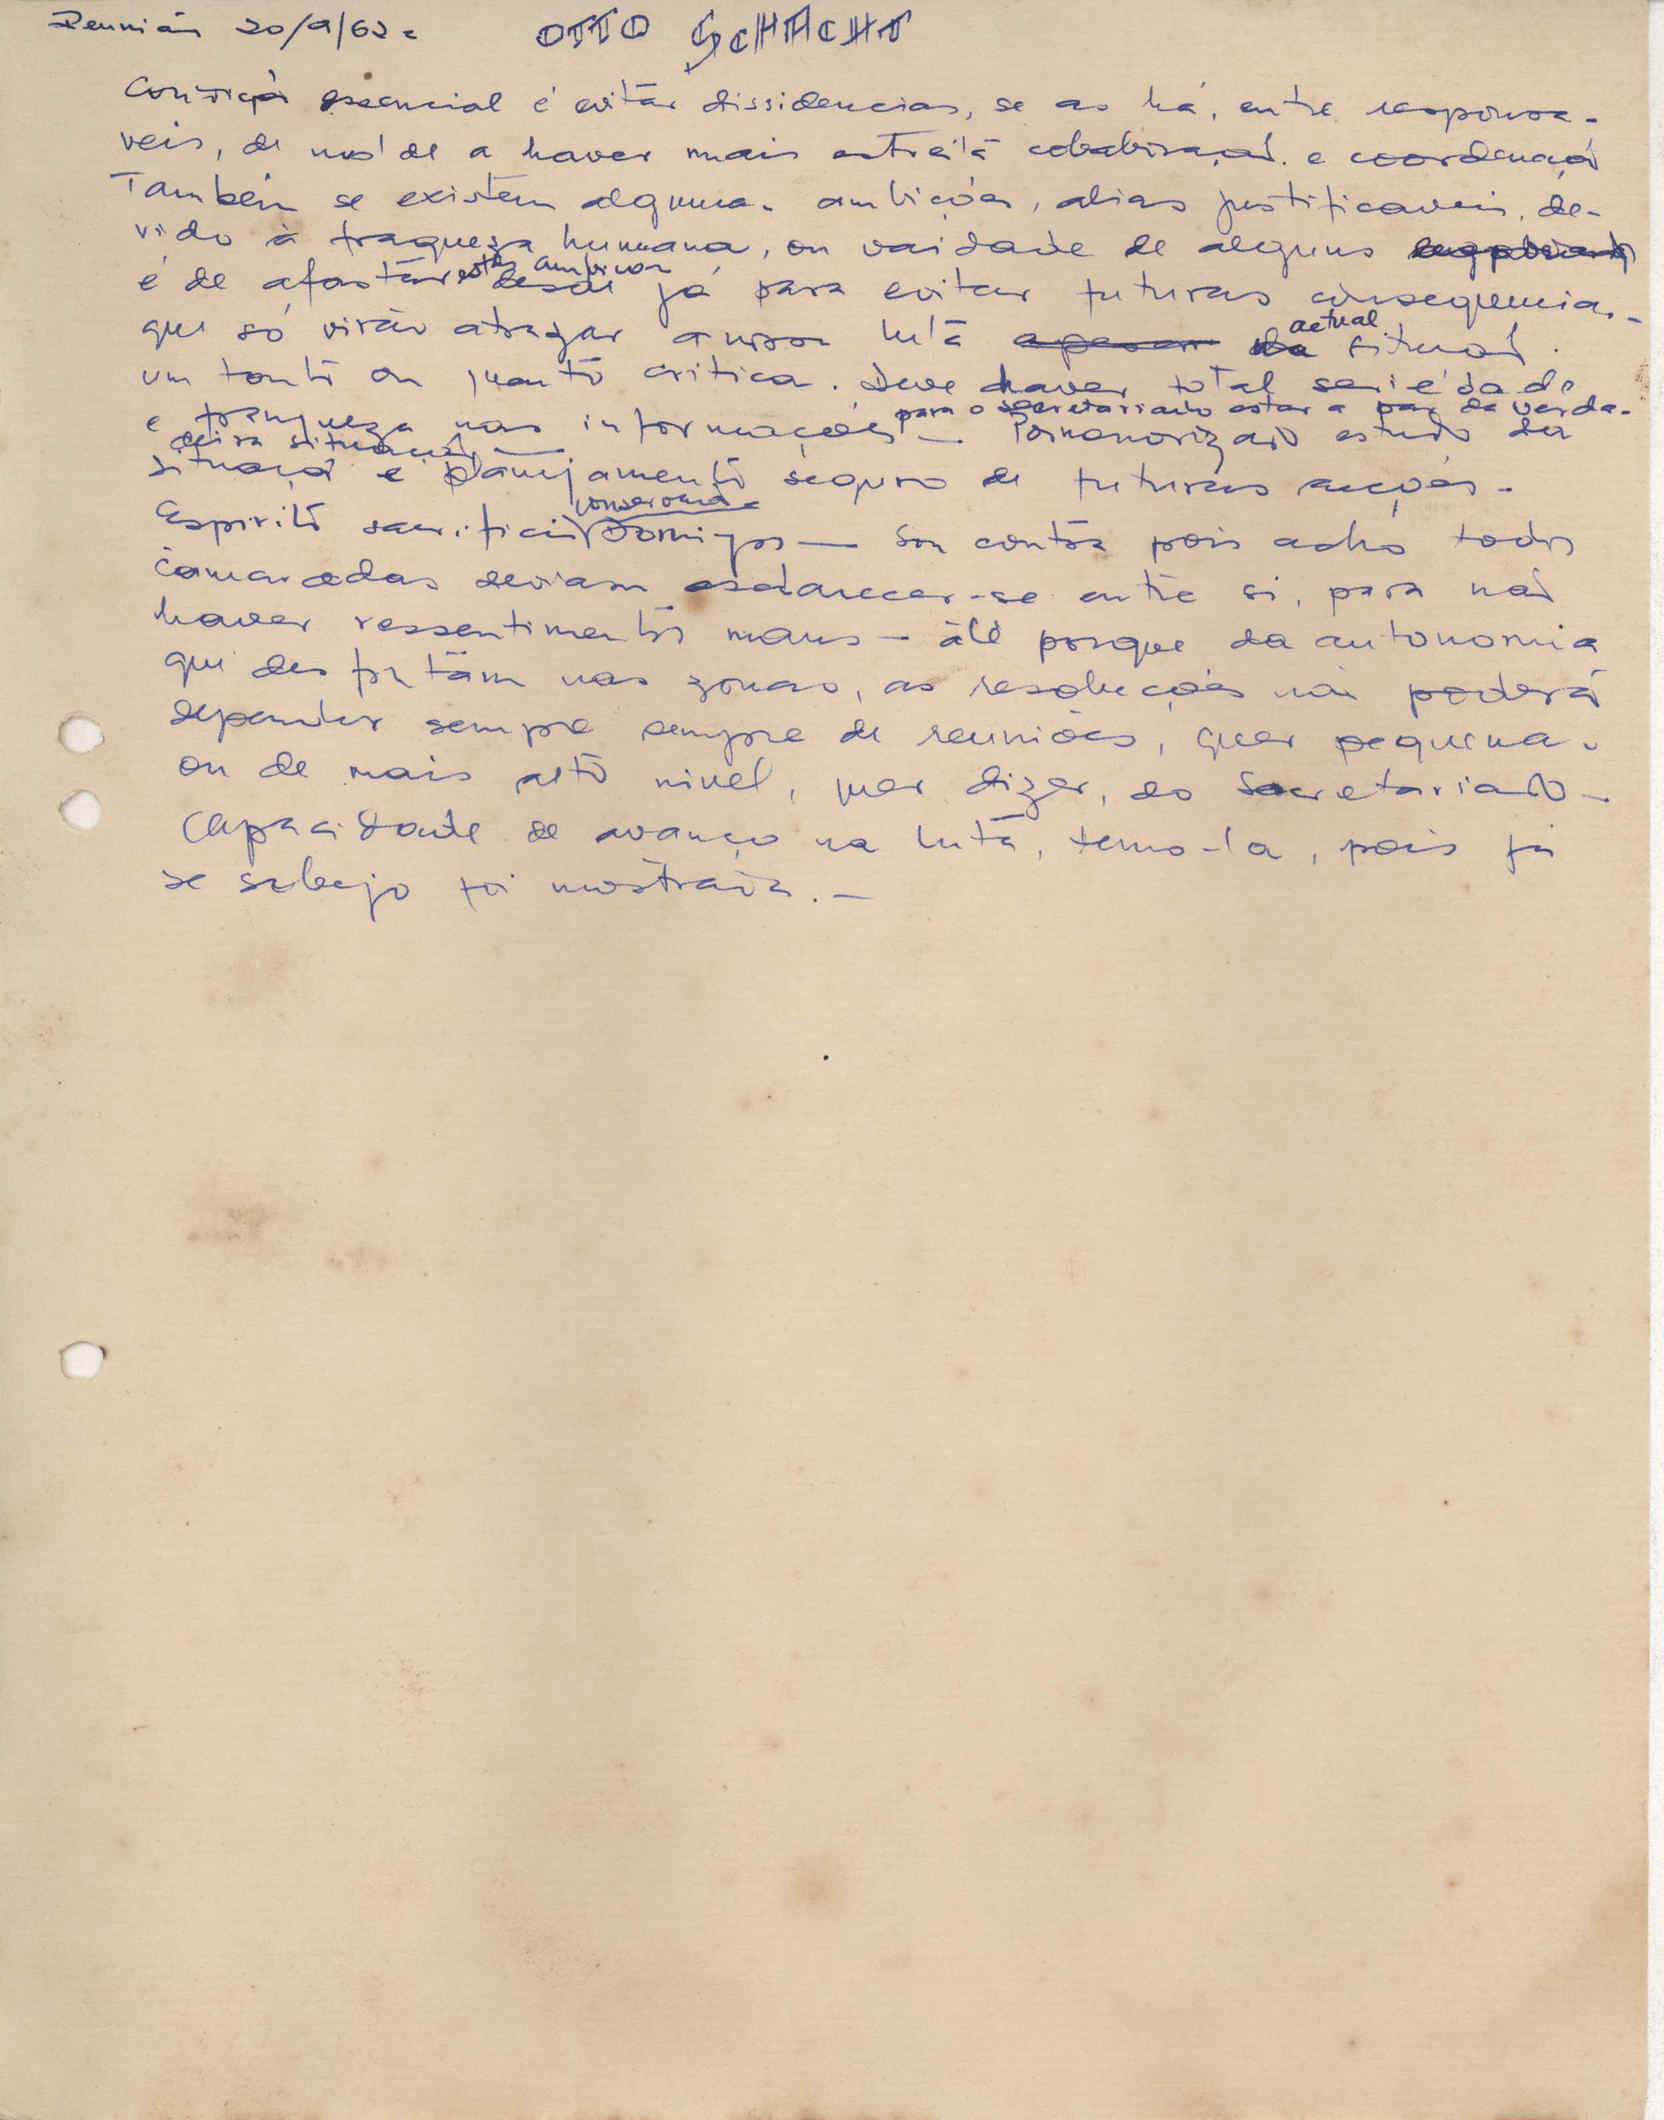 Reunião 20/9/62 - OTTO SCHACHT
Condição essencial é evitar dissidencias, se as há, entre responsa-
veis, de molde a haver mais estreita colaboração e coordenação
Também se existem algumas ambições, alias justificaveis, de-
vido à fraqueza humana, ou vaidade de alguns
é de afastar estas ambições desde já para evitar futuras consequencias -
que só virão atrazar a nossa luta apesar da actual situação
um tanto ou quanto critica. Deve haver total seriedade
e franqueza nas informações para o secretariado estar a par da verda-
deira situação — Pormenorizado estudo da
situação e planejamento seguro de futuras acções -
Espirito sacrificio conversa de Domingos — Sou contra pois acho todos
camaradas deviam esclarecer-se entre si, para não
haver ressentimentos maus - até porque da autonomia
que desfrutam nas zonas, as resoluções não poderá
depender sempre sempre de reuniões, quer pequenas
ou de mais alto nivel, quer dizer, do Secretariado -
Capacidade de avanço na luta, temo-la, pois já
se sobejo foi mostrada. -